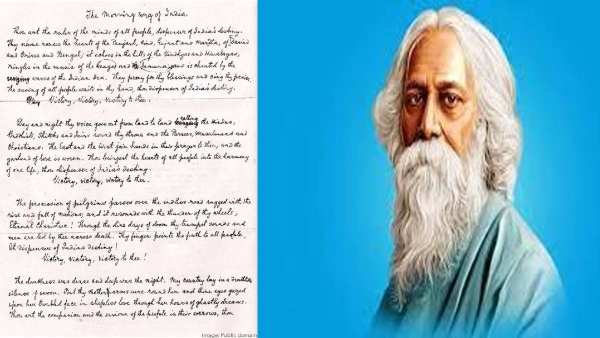 The Morning Song of India.
Thou art the ruler of the minds of all people, dispenser of India's destiny.
Thy name rouses the hearts of the Panjab, Sind, Gujrat and Maratha, of Dravid
and Orissa and Bengal; it echoes in the hills of the Vindhyas and Himalayas,
mingles in the music of the Ganges and the Jamuna and is chanted by the
surging waves of the Indian Sea. They pray for thy blessings and sing thy praise,
The saving of all people waits in thy hand, thou dispenser of India's destiny.
Victory, Victory, Victory to thee.
Day and night thy voice goes out from land to land calling the Hindus,
Budhists, Sikhs and Jains round thy throne and the Parsees, Mussulmans and
Christians. The East and the West join hands in their prayer to thee, and the
garland of love is woven. Thou bringest the hearts of all people into the harmony
of one life, thou dispenser of India's destiny.
Victory, victory, victory to thee.
The procession of pilgrims passes over the endless road rugged with the
rise and fall of nations; and it resounds with the thunder of thy wheels,
Eternal Charioteer! Through the dire days of doom thy trumpet sounds and
men are led by thee across death. Thy finger points the path to all people,
Oh dispenser of India's destiny!
Victory, victory, victory to thee!
The darkness was dense and deep was the night. My country lay in a deathlike
silence of swoon. But thy mother arms were round her and thine eyes gazed
upon her troubled face in sleepless love through her hours of ghastly dreams.
Thou art the companion and the saviour of the people in their sorrows, thou
Image: Public domain